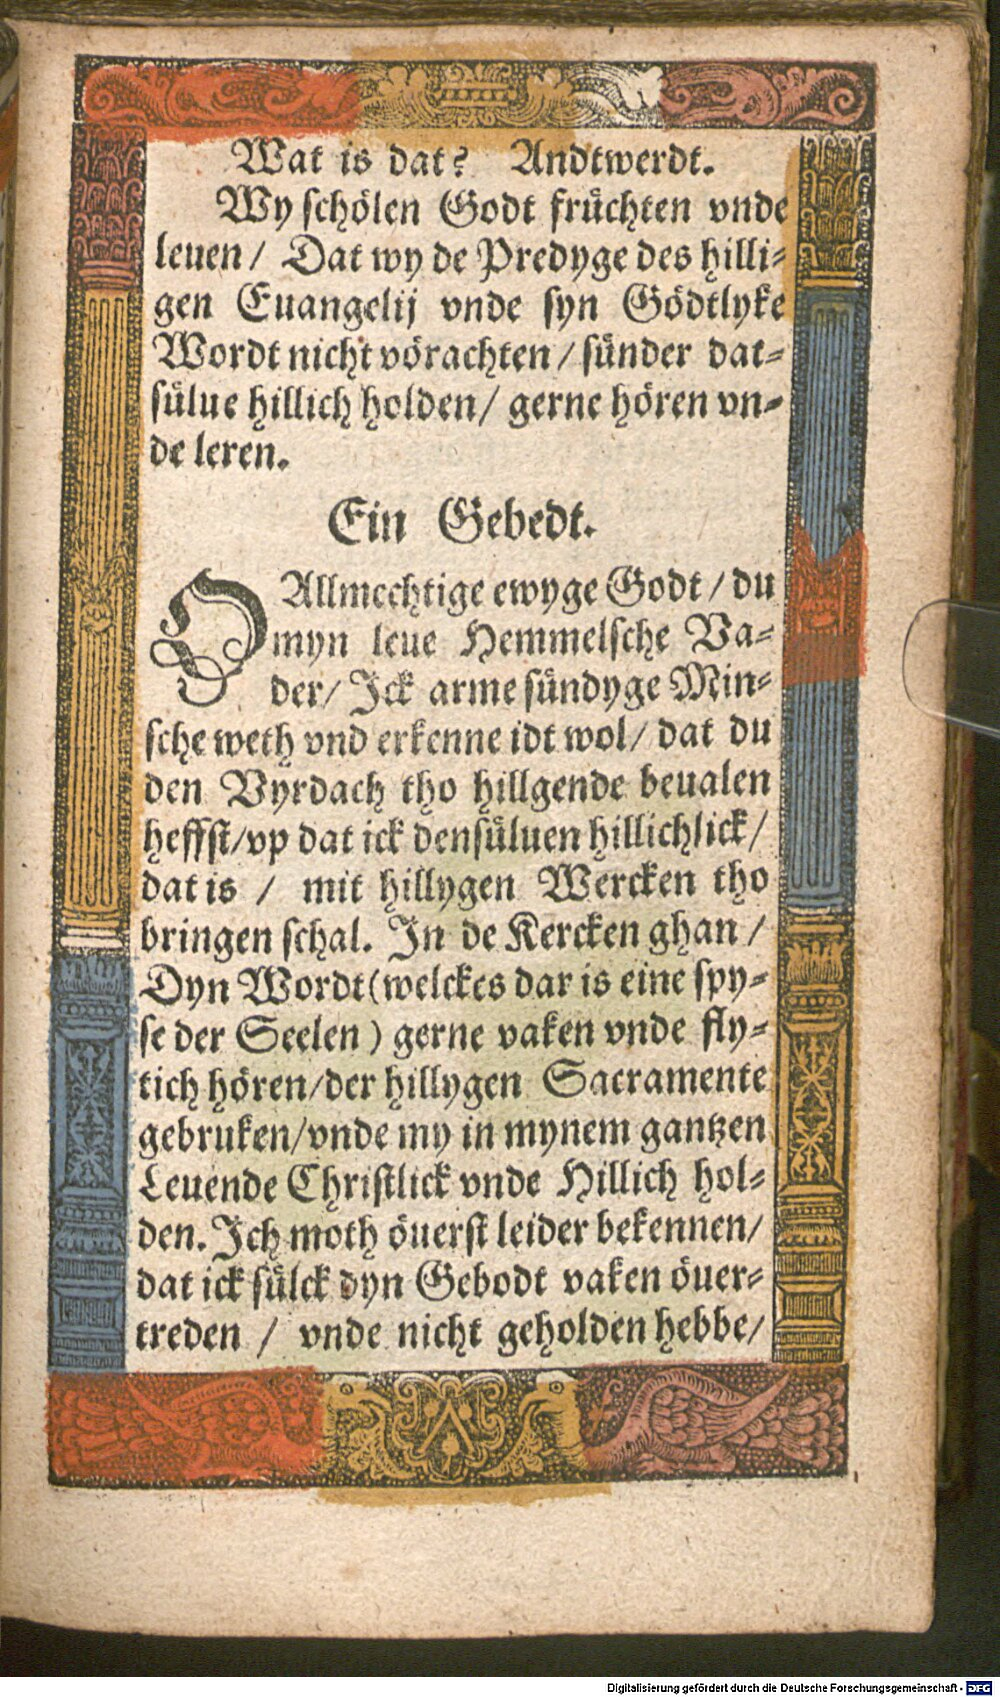 Wat is dat? Andtwerdt.
Wy schölen Godt früchten vnde
leuen / Dat wy de Predyge des hilli=
gen Euangelij vnde syn Gödtlyke
Wordt nicht vörachten / sünder dat=
sülue hillich holden / gerne hören vn=
de leren.
Ein Gebedt.
O Allmechtige ewyge Godt / du
myn leue Hemmelsche Va=
der / Ick arme sündyge Min=
sche weth vnd erkenne idt wol / dat du
den Vyrdach tho hillgende beualen
heffst / vp dat ick densüluen hillichlick /
dat is / mit hillygen Wercken tho
bringen schal. In de Kercken ghan /
Dyn Wordt (welckes dar is eine spy=
se der Seelen) gerne vaken vnde fly=
tich hören / der hillygen Sacramente
gebruken / vnde my in mynem gantzen
Leuende Christlick vnde Hillich hol=
den. Ich moth öuerst leider bekennen /
dat ick sülck dyn Gebodt vaken öuer=
treden / vnde nicht geholden hebbe /
Digitalisierung gefördert durch die Deutsche Forschungsgemeinschaft - DFG